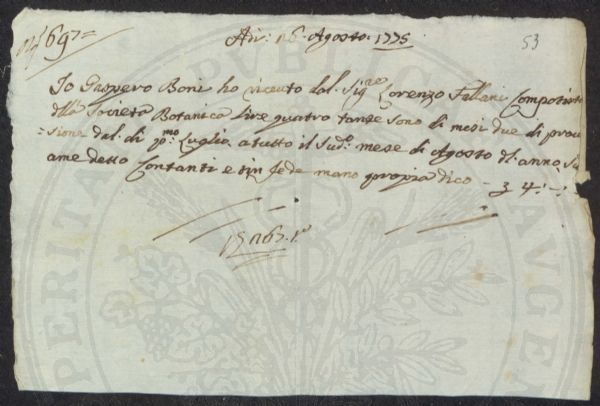 N° 69
Adi: 16. Agosto. 1775
53
Io Gaspero Boni ho riceuto dal. Sig.re Lorenzo Fallani Compotista
della Società Botanica Lire quatro tante sono di mesi due di provi
=sione dal. di p.mo Luglio a tutto il Sud.o mese di Agosto d. anno
ame detto Contanti e in fede mano propria dico - 4:-:-
PERITA
PUBLICA
AUGE